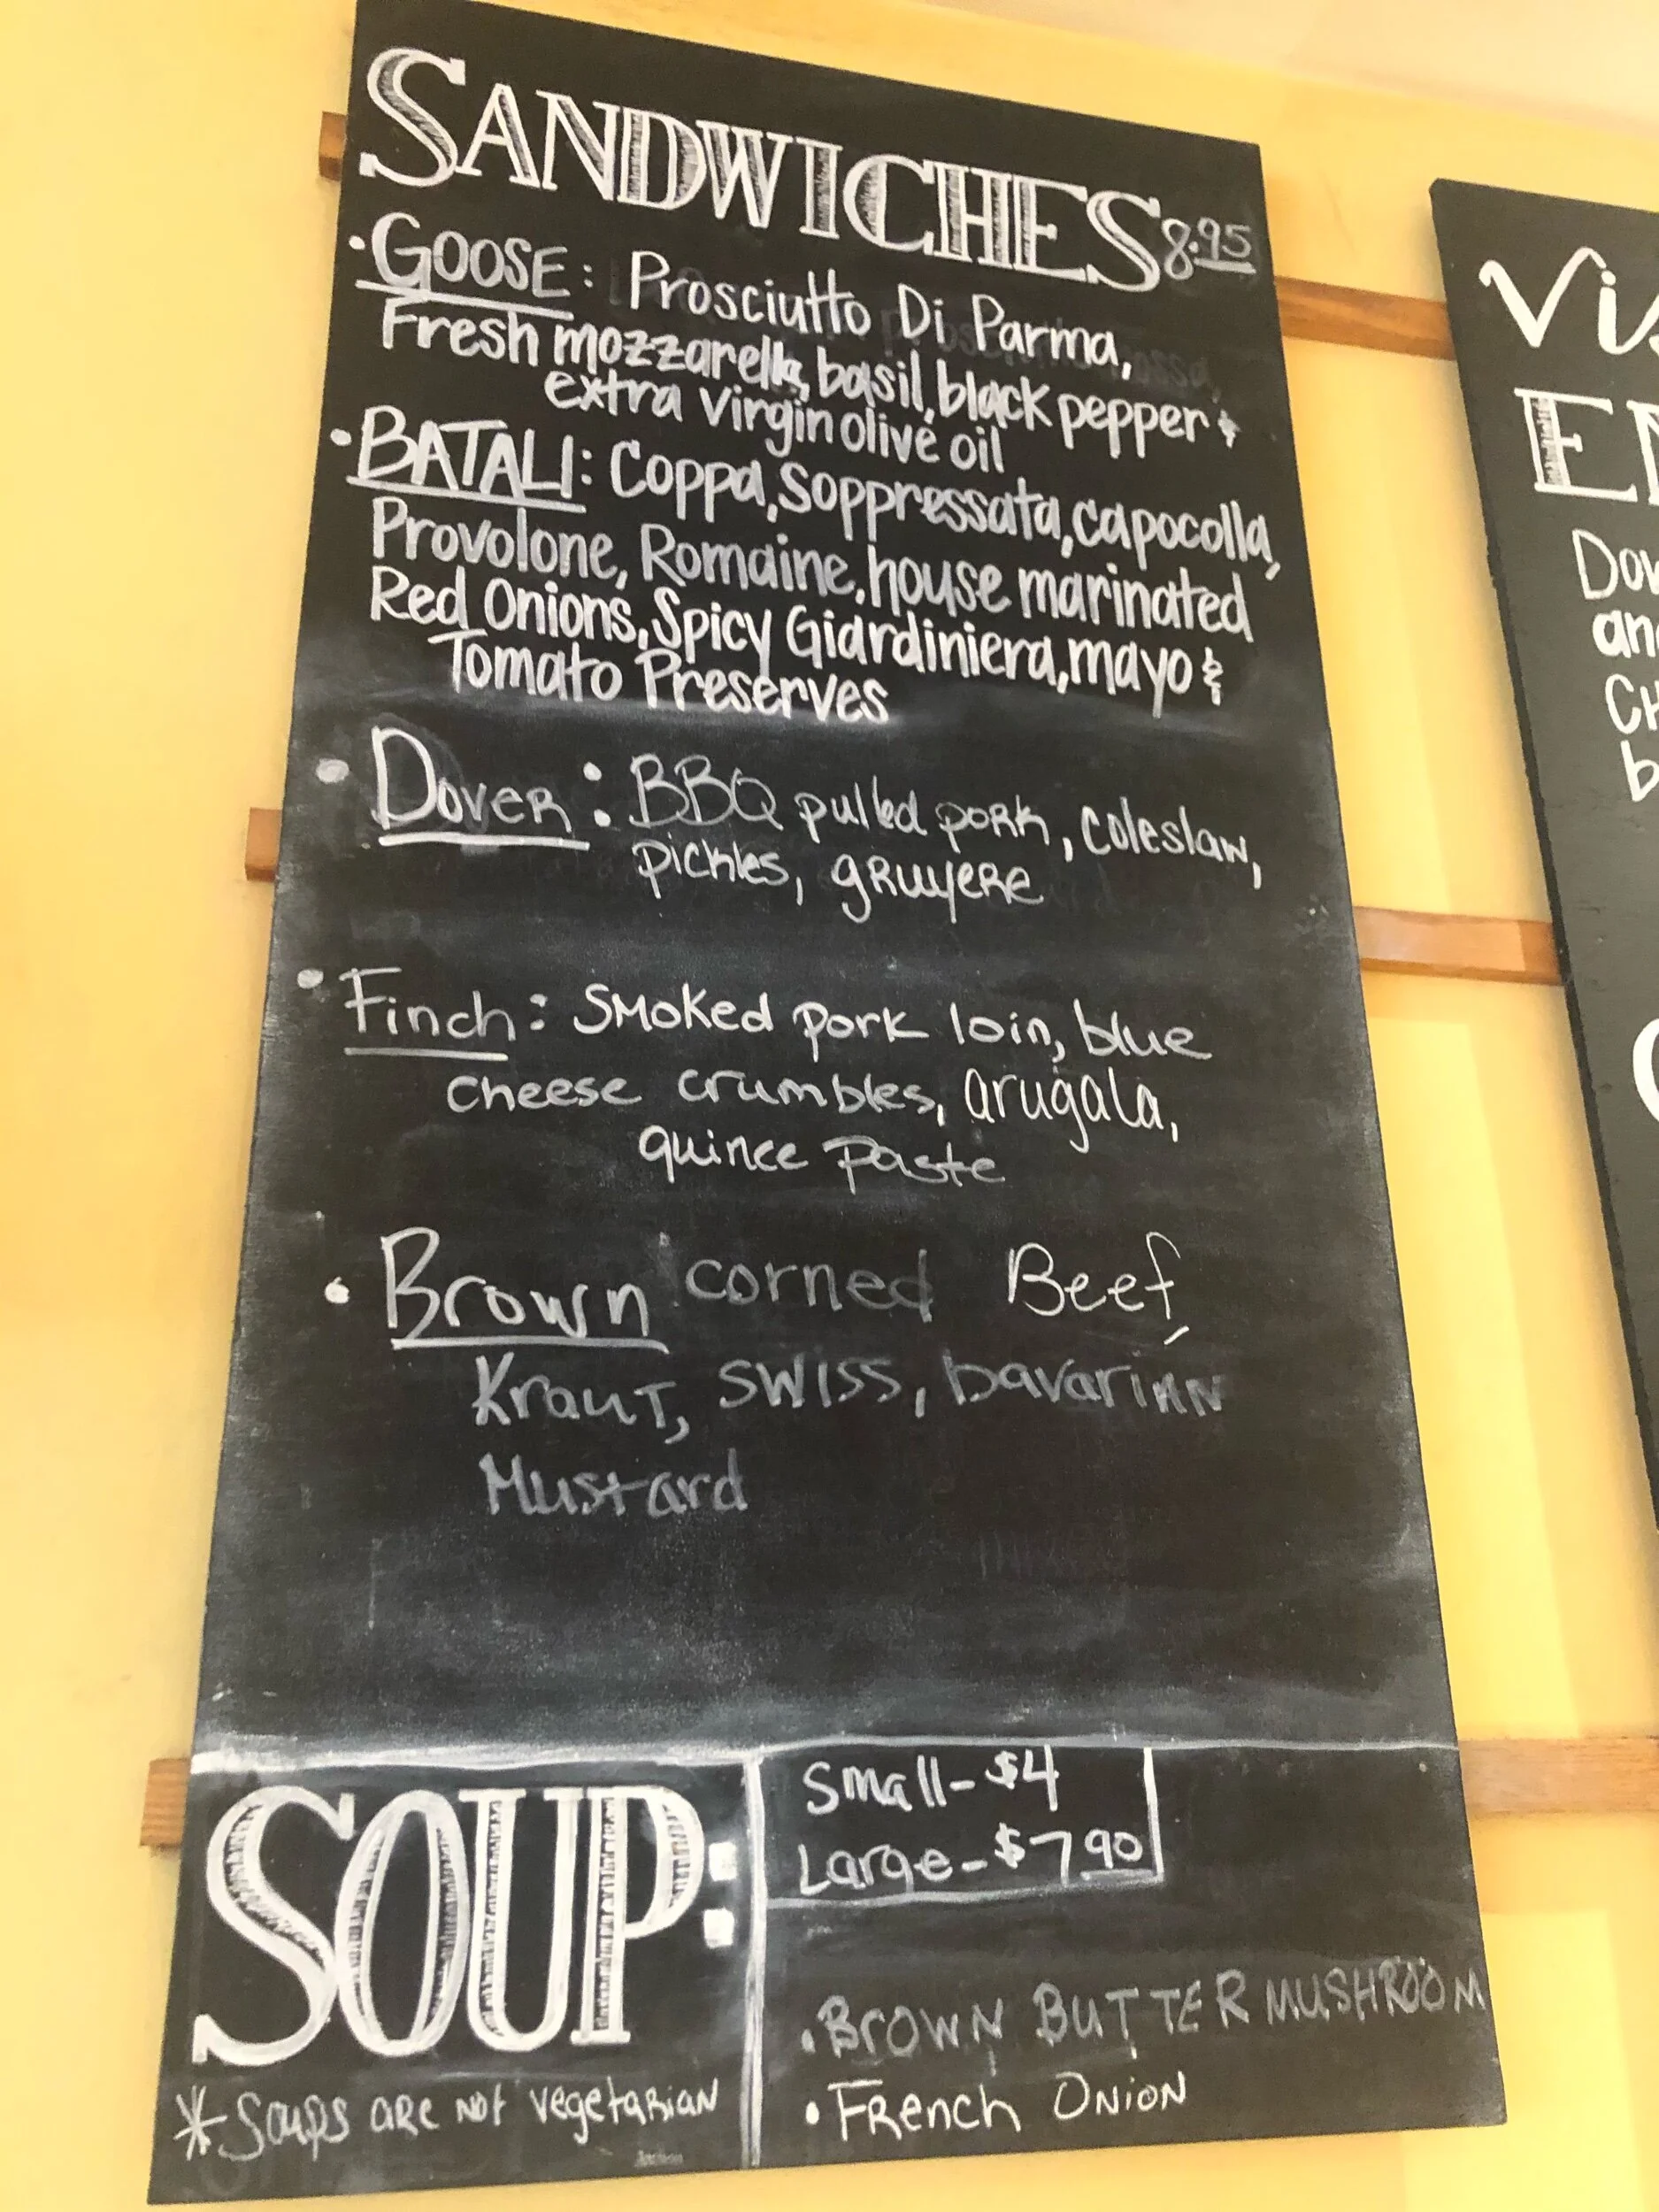 SANDWICHES 8.95
• GOOSE: Prosciutto Di Parma,
Fresh mozzarella, basil, black pepper &
extra virgin olive oil
• BATALI: Coppa, Soppressata, capocolla,
Provolone, Romaine, house marinated
Red Onions, Spicy Giardiniera, mayo &
Tomato Preserves
• Dover: BBQ pulled pork, coleslaw,
pickles, gruyere
• Finch: Smoked pork loin, blue
cheese crumbles, arugala,
quince paste
• Brown corned Beef,
Kraut, swiss, bavarian
Mustard
SOUP:
Small - $4
Large - $7 90
• BROWN BUTTER MUSHROOM
• French Onion
* Soups are not vegetarian
Vi
E
Dov
an
CH
b